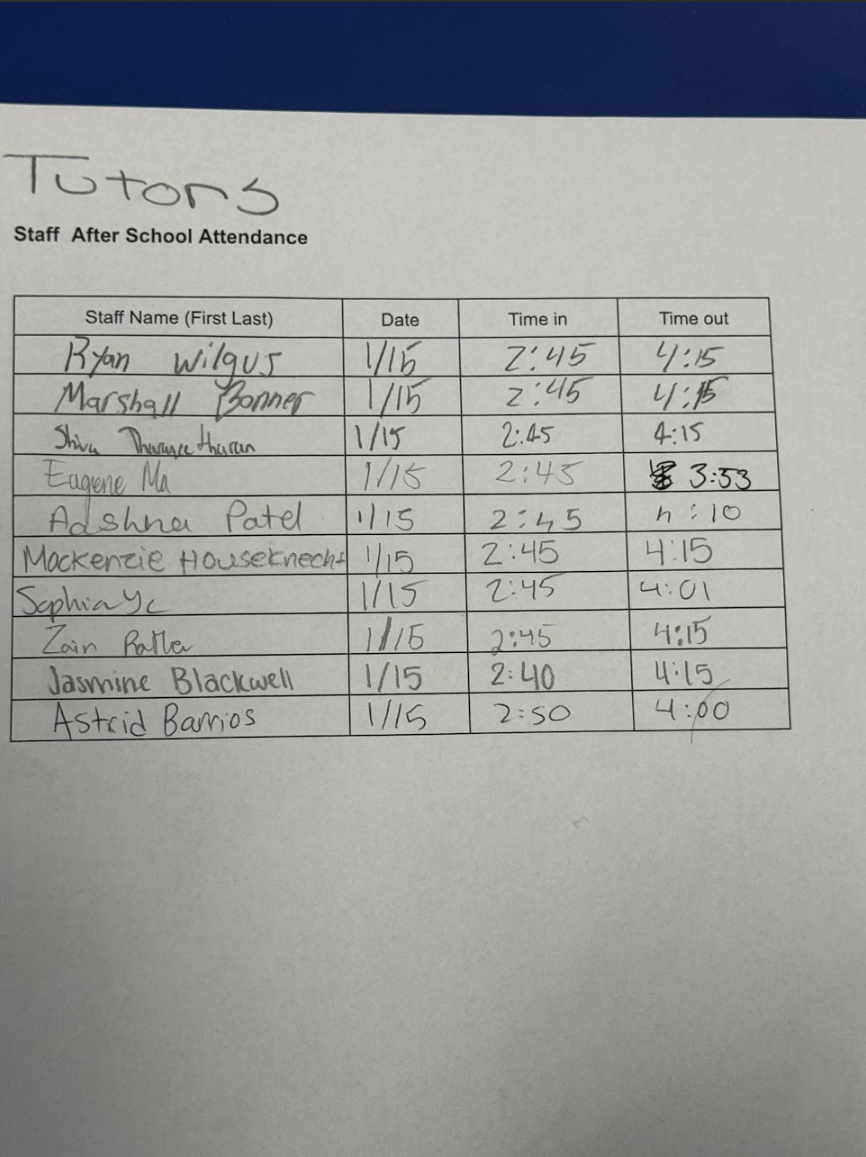 Tutors
Staff After School Attendance
Staff Name (First Last) Date Time in Time out
Ryan Wilgus 1/15 2:45 4:15
Marshall Bonner 1/15 2:45 4:15
Shiva 1/15 2:45 4:15
Eugene Ma 1/15 2:45 3:53
Adshna Patel 1/15 2:45 4:10
Mackenzie Houseknecht 1/15 2:45 4:15
Sophia Ye 1/15 2:45 4:01
Zain 1/15 2:45 4:15
Jasmine Blackwell 1/15 2:40 4:15
Astrid Barrios 1/15 2:50 4:00